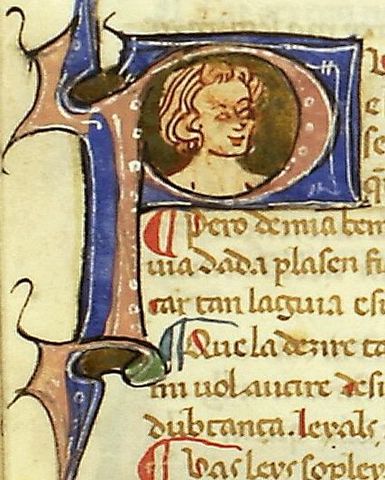 P
e
se
q
Pero demia ben
uia dada plasen fi
tar tan laguia es
Que la dezire
mi uol aucire desi
dubtanca. leyals
Vas leys sopley